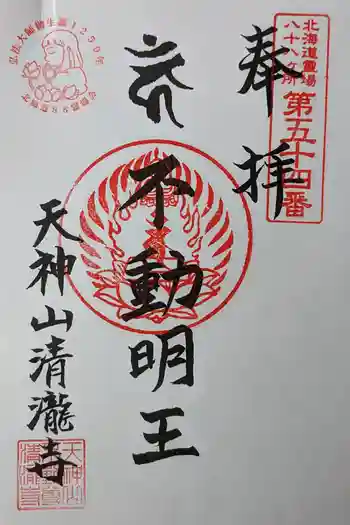 北海道霊場
八十八ヶ所
第五十四番
奉拝
不動明王
弘法大師御生誕1250年
天神山清瀧寺
天神山
清瀧寺